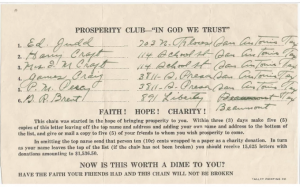 PROSPERITY CLUB—"IN GOD WE TRUST"
1. Ed Judd 703 N. San Antonio Tex
2. Harry Craft 114 School St San Antonio Tex
3. Mrs E M Craft 114 School St San Antonio Tex
4. James Craig 3811 S. Presa San Antonio Tex
5. P. M. 3811 S. Presa San Antonio Tex
6. B. R. Brent 891 Liberty Beaumont
FAITH! HOPE! CHARITY!
This chain was started in the hope of bringing prosperity to you. Within three (3) days make five (5)
copies of this letter leaving off the top name and address and adding your own name and address to the bottom of
the list, and give or mail a copy to five (5) of your friends to whom you wish prosperity to come.
In omitting the top name send that person ten (10c) cents wrapped in a paper as a charity donation. In turn
as your name leaves the top of the list (if the chain has not been broken) you should receive 15,625 letters with
donations amounting to $1,536.50.
NOW IS THIS WORTH A DIME TO YOU?
HAVE THE FAITH YOUR FRIEND HAD AND THIS CHAIN WILL NOT BE BROKEN